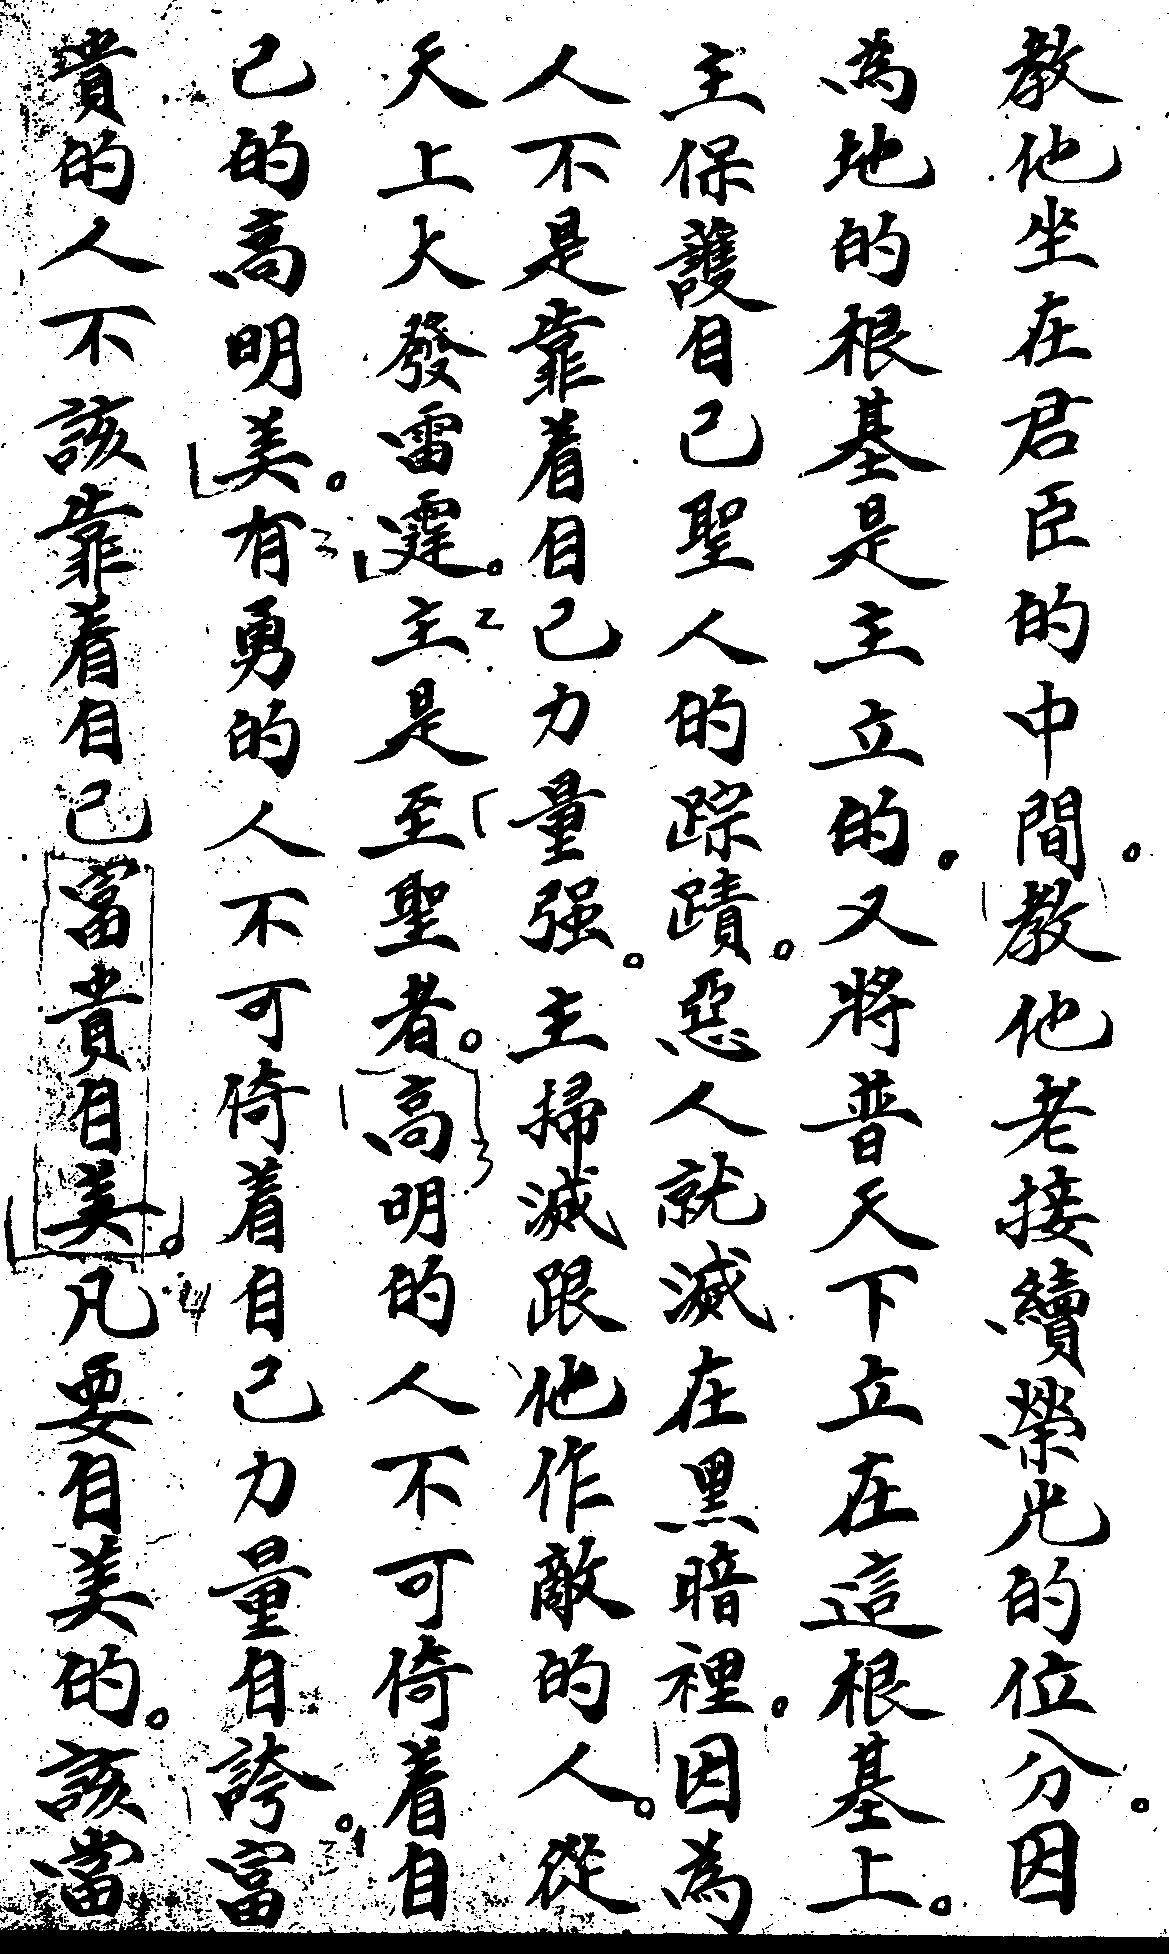 教他坐在君臣的中間。教他老接續榮光的位分。因
為地的根基是主立的。又將普天下立在這根基上。
主保護自己聖人的踪蹟。惡人就滅在黑暗裡。因為
人不是靠着自己力量强。主掃滅跟他作敵的人。從
天上大發雷霆。主是至聖者。高明的人不可倚着自
己的高明美。有勇的人不可倚着自己力量自誇。富
貴的人不該靠着自己富貴自美。凡要自美的。該當